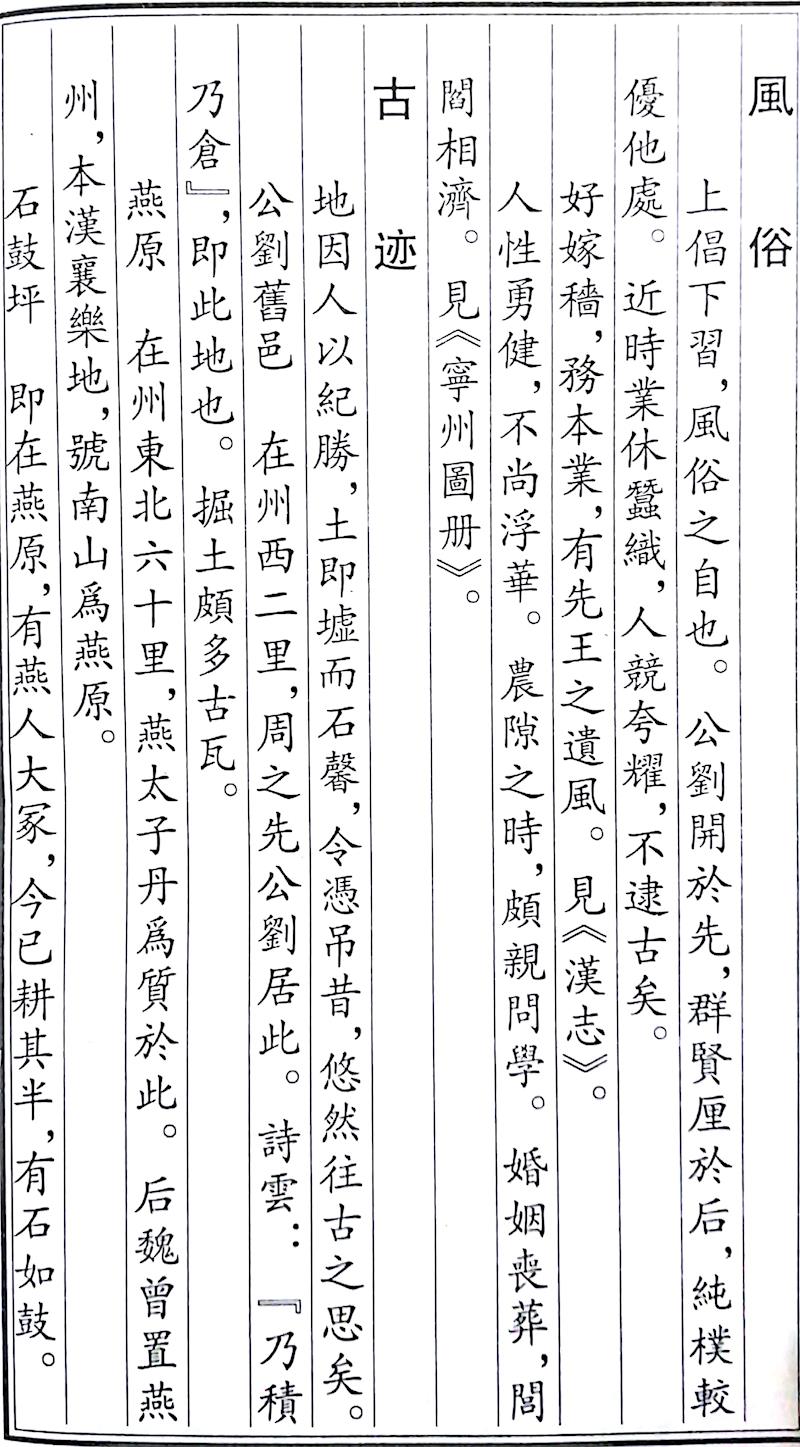 風俗
上倡下習，風俗之自也。公劉開於先，群賢厘於后，純樸較
優他處。近時業休蠶織，人競夸耀，不逮古矣。
好嫁穡，務本業，有先王之遺風。見《漢志》。
人性勇健，不尚浮華。農隙之時，頗親問學。婚姻喪葬，閭
閻相濟。見《寧州圖册》。
古迹
地因人以紀勝，土即墟而石馨，令憑吊昔，悠然往古之思矣。
公劉舊邑　在州西二里，周之先公劉居此。詩雲：『乃積
乃倉』，即此地也。掘土頗多古瓦。
燕原　在州東北六十里，燕太子丹爲質於此。后魏曾置燕
州，本漢襄樂地，號南山爲燕原。
石鼓坪　即在燕原，有燕人大冢，今已耕其半，有石如鼓。